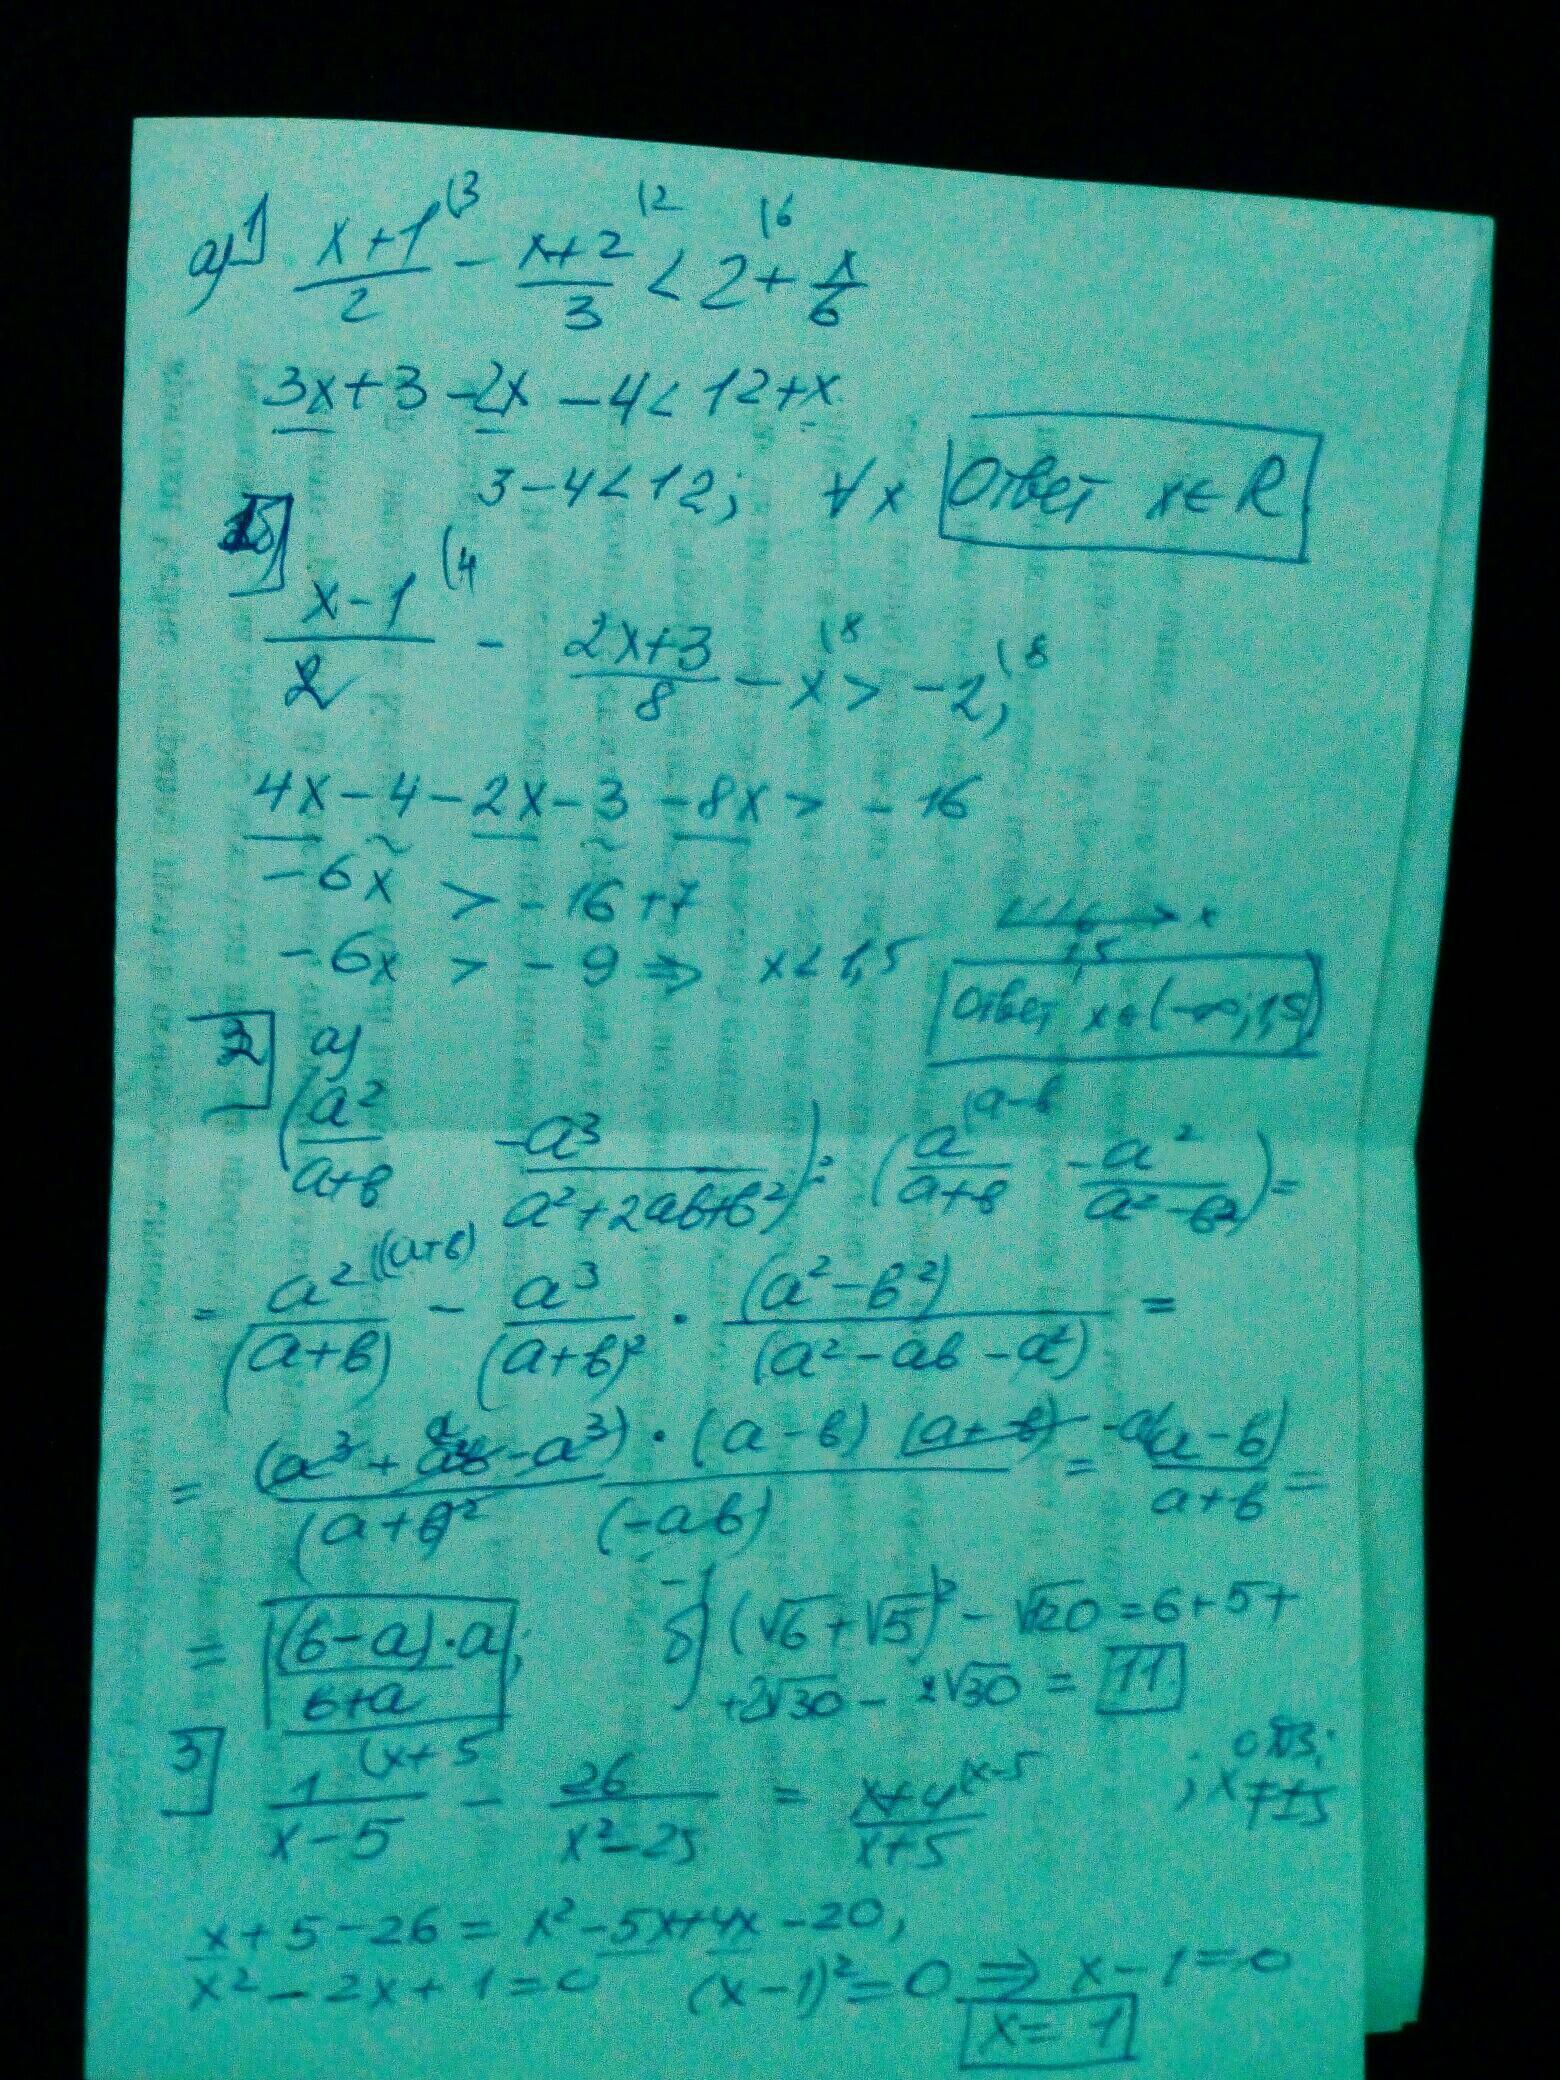 а) 1 (x+1)/2 (3 - (x+2)/3 (2 < 2 (6 + x/6
3x+3-2x-4<12+x
3-4<12; ∀x Ответ x∈R
б) (x-1)/2 (4 - (2x+3)/8 - x (8 > -2, (8
4x-4-2x-3-8x > -16
-6x > -16+7
-6x > -9 ⇒ x<1,5 x 1,5
Ответ x∈(-∞;1,5)
2 а)
(a²/(a+в) - a³/(a²+2aв+в²)) : (a/(a+в) (a-в - a²/(a²-в²)) =
= a²/(a+в) ((a+в) - a³/(a+в)² · (a²-в²)/(a²-aв-a²) =
= (a³+a²в-a³)·(a-в)(a+в)/(a+в)² (-aв) = -a(a-в)/(a+в) =
= (в-a)·a/(в+a); б) (√6+√5)² - √120 = 6+5+
+2√30 - 2√30 = 11
3 1/(x-5) (x+5 - 26/(x²-25) = (x+4)/(x+5) (x-5 ; ОДЗ: x≠±5
x+5-26 = x²-5x+4x-20,
x²-2x+1=0 (x-1)²=0 ⇒ x-1=0
x=1